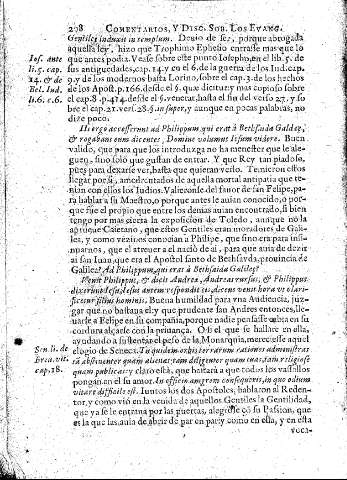 208 COMENTARIOS, Y DISC. SOB. LOS EVANG.
Gentiles induxit in templum. Deuio de ser, porque abrogada
aquella ley, hizo que Trophimo Ephesio entrasse mas que lo
que antes podia. Vease sobre este punto Iosepho, en el lib. 5. de
sus antiguedades, cap. 14. y en el 6. de la guerra de los Iud. cap.
9. y de los modernos basta Lorino, sobre el cap. 3. de los hechos
de los Apost. p. 166. desde el §. quæ dicitur; y mas copioso sobre
el cap. 8. p. 474. desde el §. venerat, hasta el fin del verso 27. y so
bre el cap. 21. vers. 28. §. in super, y aunque en pocas palabras, no
dize poco.
Iosf. ante
li. 5. cap.
14. & de
Bel. Iud.
l. 6. c. 6.
Hi ergo accesserunt ad Philippum, qui erat à Bethsaida Galileę,
& rogabant eum dicentes, Domine volumus Iesum videre. Buen
valido, que para que los introduzga no ha menester que le ale-
guen, sino solo que gustan de entrar. Y que Rey tan piadoso,
pues para dexarse ver, basta que quieran verlo. Temieron estos
llegar por si, amedrentados de aquella mortal antipatia que te-
nian con ellos los Iudios. Valieronse del fauor de san Felipe, pa-
ra hablar a su Maestro, o porque antes le auian conocido, o por-
que fue el propio que entre los demas auian encontrado, si bien
tengo por mas cierta la exposicion de Toledo, aunque no la
apruebe Caietano, que estos Gentiles eran moradores de Gali-
lea, y como vezinos conocian a Philipe, que sino era para ani-
marnos, que el atreuer a el nació de ai, para que auia de dezir
ai san Iuan, que era el Apostol santo de Bethsayda, prouincia de
Galilea? Ad Philippum, qui erat à Bethsaida Galileę?
Venit Philippus, & dicit Andreę, Andreas rursus, & Philippus
dixerunt Iesu, Iesus autem respondit eis, dicens venit hora vt clari-
ficetur filius hominis. Buena humildad para vna Audiencia, juz-
gar que no bastaua el y que prudente san Andres entonces, lle-
uarle a Felipe en su compañia, porque nadie pensasse cabia en su
cordura alçarse con la priuança. O si el que se hallare en ella,
ayudando a sustentar el peso de la Monarquia, mereciesse aquel
elogio de Seneca. Tu quidem orbis terrarum rationes administras
tã abstinenter quam alienas, tam diligenter quam tuas, tam religiosè
quam publicas: y claro está, que haitará a que todos los vassallos
pongan en su amor. In officio amorem consequeris, in quo odium
vitare difficile est. Iuntos los dos Apostoles, hablaron al Reden-
tor, y como vió en la venida de aquellos Gentiles la Gentilidad,
que ya se le entraua por las puertas, alegrose có su Passion, que
es la que las auia de abrir de par en par y como en esta, y en esta
Sen. li. de
breu. vit.
cap. 18.
voca-